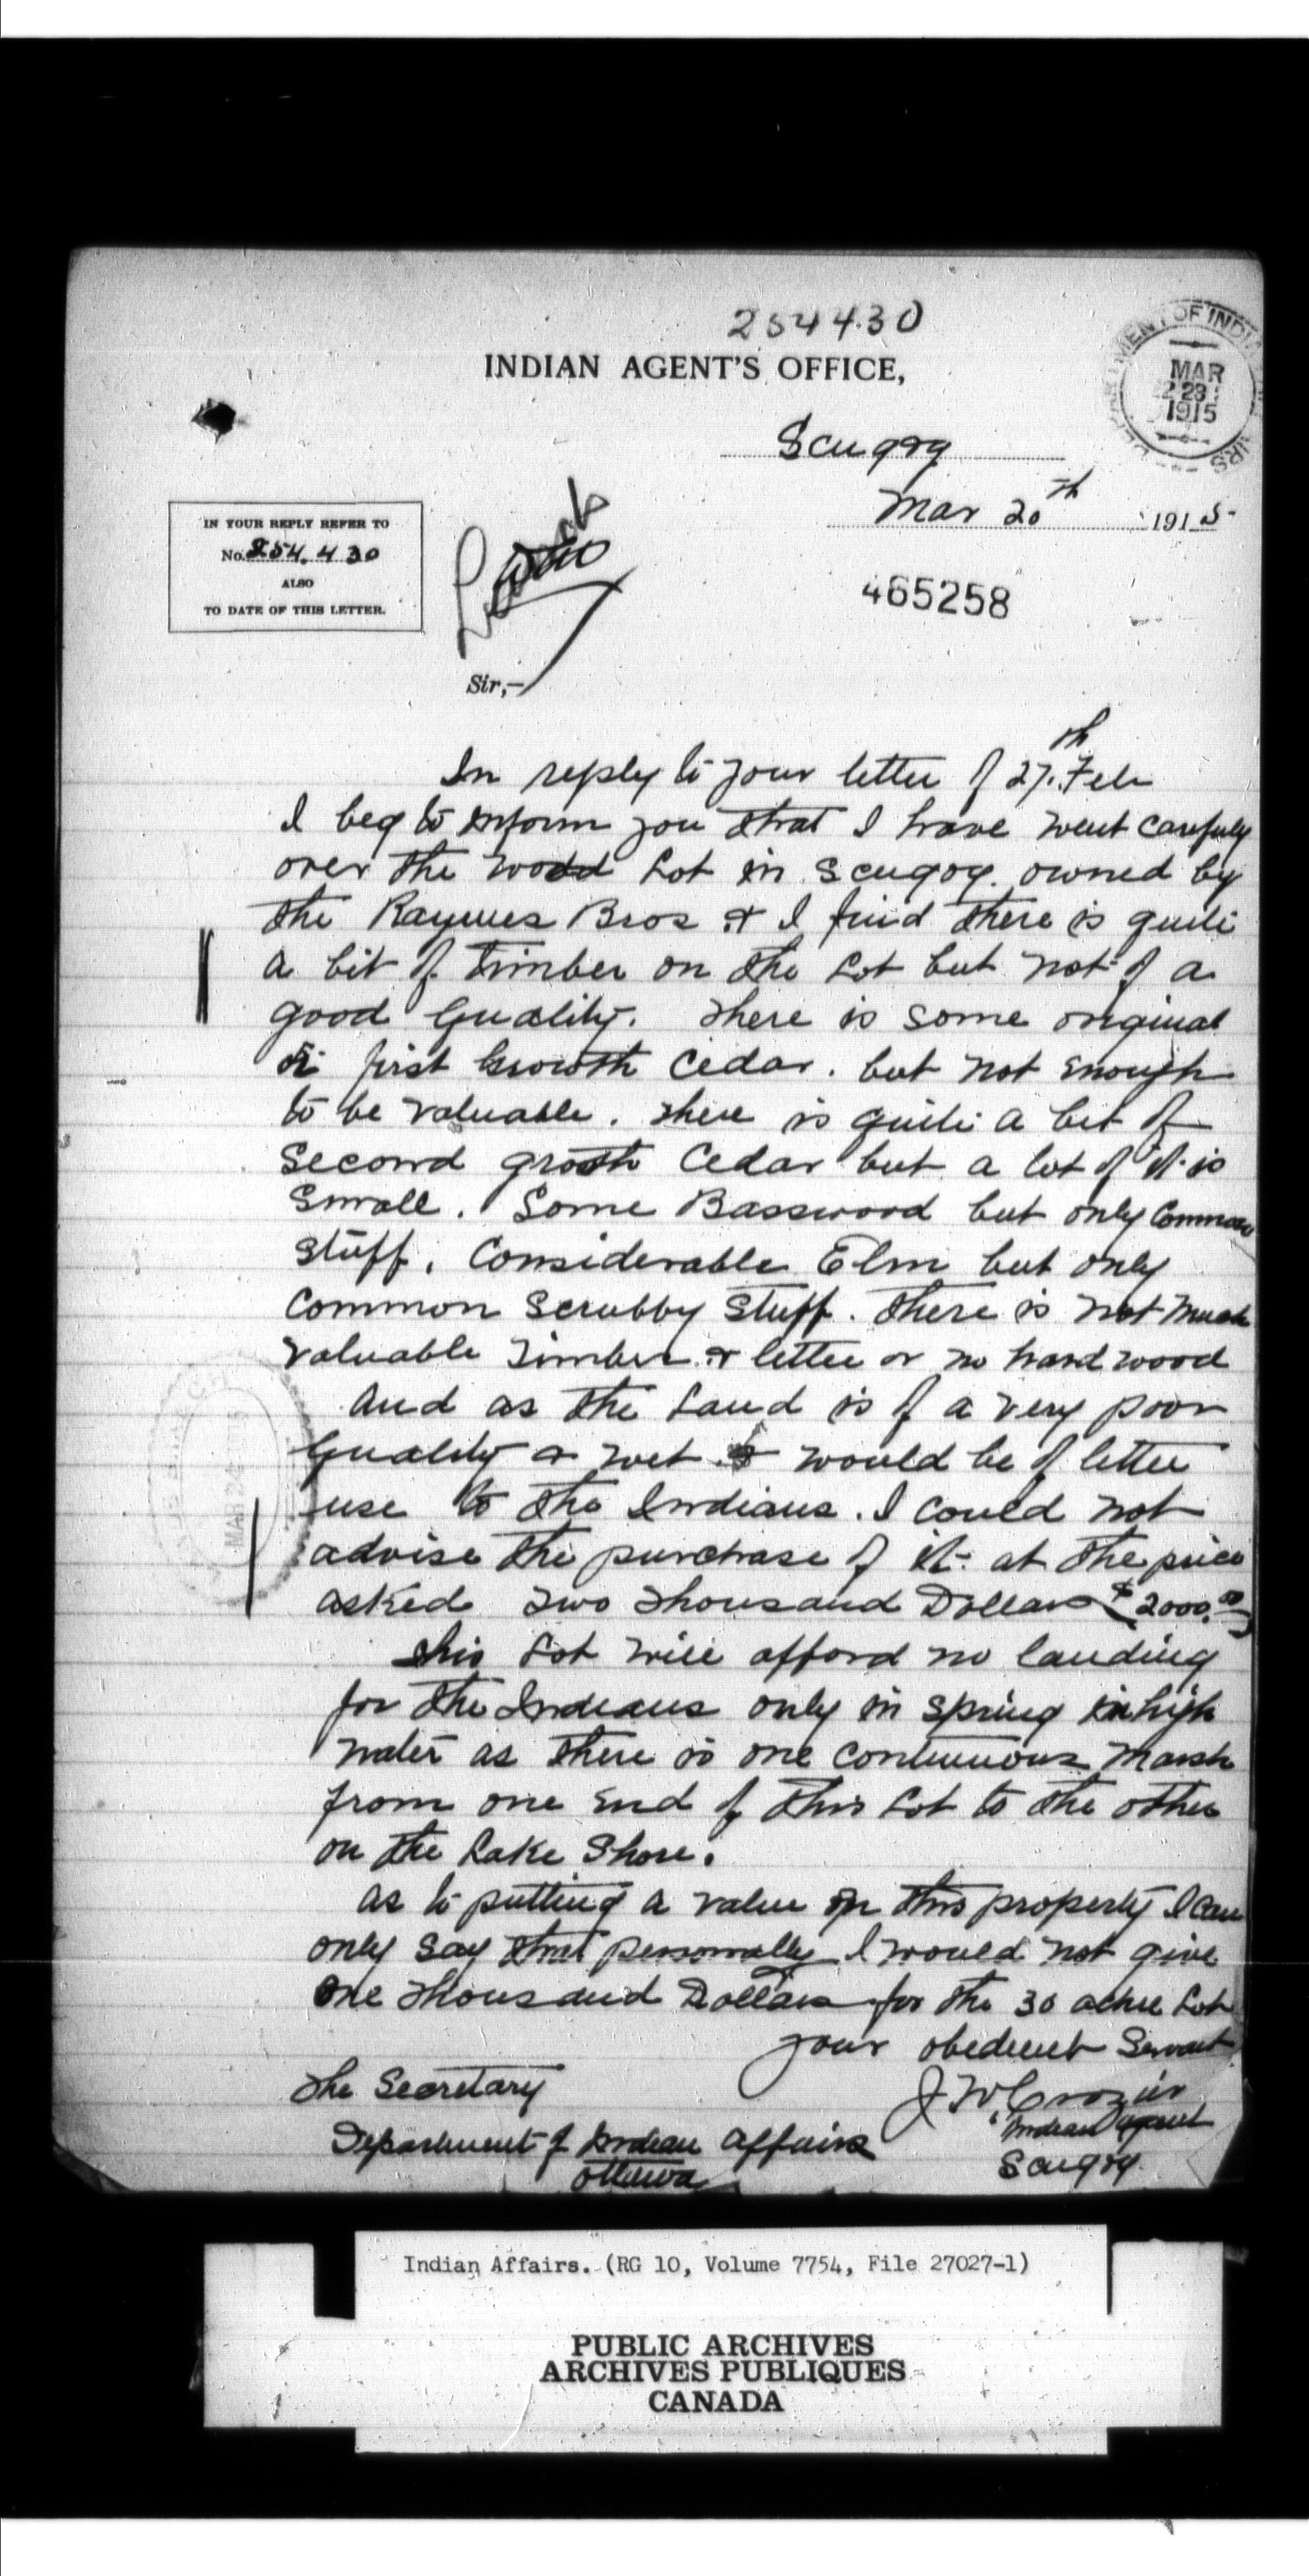 254430
INDIAN AGENT'S OFFICE,
DEPARTMENT OF INDIAN AFFAIRS
MAR
23
1915
Scugog
Mar 20th 1915
IN YOUR REPLY REFER TO
No. 254.430
ALSO
TO DATE OF THIS LETTER.
465258
Sir,—
In reply to your letter of 27th Feb
I beg to inform you that I have went carefuly
over the wood Lot in Scugog. owned by
the Raymes Bros & I find there is quite
a bit of Timber on the Lot but not of a
good Quality. There is some original
or first Growth Cedar. but not Enough
to be valuable. There is quite a bit of
Second groth Cedar but a lot of it is
Small. Some Basswood but only Common
Stuff. Considerable Elm but only
Common Scrubby Stuff. There is not much
valuable Timber & little or no hard wood
And as the Land is of a very poor
Quality & wet & would be of little
use to the Indians. I could not
advise the purchase of it at the price
asked Two Thousand Dollars ($2000.00)
This Lot will afford no landing
for the Indians only in Spring in high
water as there is one continuous Marsh
from one End of this Lot to the other
on the Lake Shore.
as to putting a value on this property I can
only say that personally I would not give
One Thousand Dollars for the 30 acher Lot
your obedient Servant
J W Crozier
Indian Agent
Scugog.
The Secretary
Department of Indian Affairs
Ottawa
MAR 24 1915
Indian Affairs. (RG 10, Volume 7754, File 27027-1)
PUBLIC ARCHIVES
ARCHIVES PUBLIQUES
CANADA